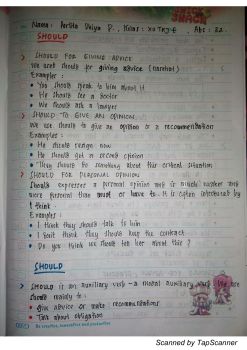 SNACK
Name : Perlita Dhiya P. , Kelas : XII TKJ E Abs : 22.
SHOULD
SHOULD FOR GIVING ADVICE
We use should for giving advice (saran)
Examples :
• You should speak to him about it
• He should see a doctor
• We should ask a lawyer
SHOULD TO GIVE AN OPINION
We use should to give an opinion or a recommendation
Examples :
• He should resign now
• He should get a second opinion
• They should do something about this critical situation
SHOULD FOR PERSONAL OPINION
Should expresses a personal opinion and is much weaker and
more personal than must or have to. It is often introduced by
I think.
Examples :
• I think they should talk to him
• I don't think they should keep the contract
• Do you think we should tell her about this ?
SHOULD
SHOULD is an auxiliary verb - a modal auxiliary verb. We use
should mainly to :
• give advice or make recommendations
• Talk about obligation
Be creative, innovative and productive
Scanned by TapScanner